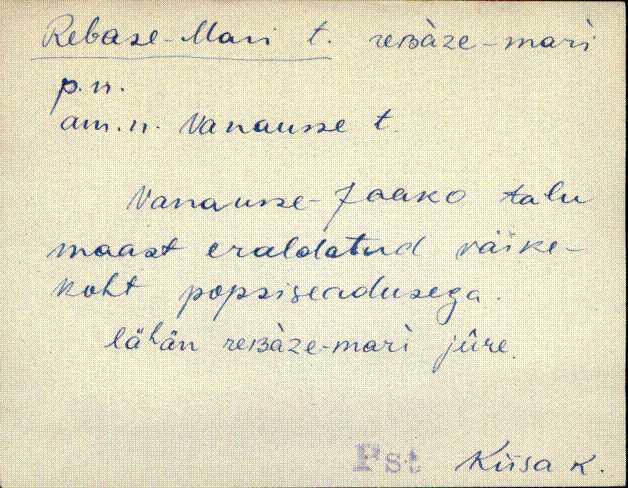 Rebase-Mari t. reʙàze-marì
p.n.
am.n. Vanausse t.
Vanausse-Jaako talu
maast eraldatud väike-
koht popsiseadusega.
lähän reʙàze-marì jûre.
Pst Kiisa K.